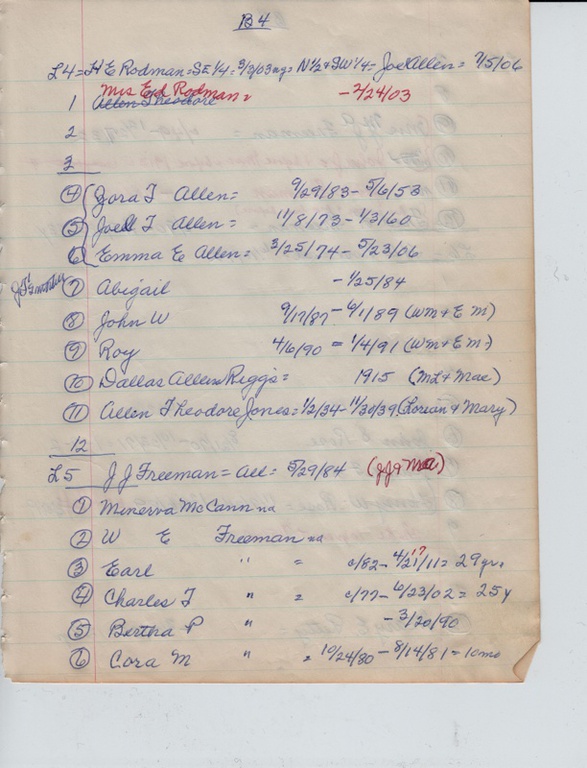 B4
L4 = H E Rodman = SE 1/4 = 3/3/03 N 1/2 & SW 1/4 = Joel Allen = 7/5/06
Mrs Ed Rodman = - 2/24/03
1 Allen Theodore
2
3
4 Zora T Allen = 9/29/83 - 5/6/53
5 Joel T Allen = 11/8/73 - 1/3/60
6 Emma E Allen = 3/25/74 - 5/23/06
7 Abigail - 1/25/84
8 John W 9/17/87 - 6/1/89 (Wm & E M)
9 Roy 4/6/90 = 1/4/91 (Wm & E M)
10 Dallas Allen Riggs = 1915 (ML & Mae)
11 Allen Theodore Jones = 1/2/34 - 11/30/39 (Lorian & Mary)
12
L5 J J Freeman = all = 5/29/84 (JJ & )
1 Minerva McCann na
2 W E Freeman na
3 Earl " = c/82 - 4/21/11 17 = 29 yrs
4 Charles T " = c/77 - 6/23/02 = 25 y
5 Bertha P " - 3/20/90
6 Cora M " = 10/24/80 - 8/14/81 = 10 mo